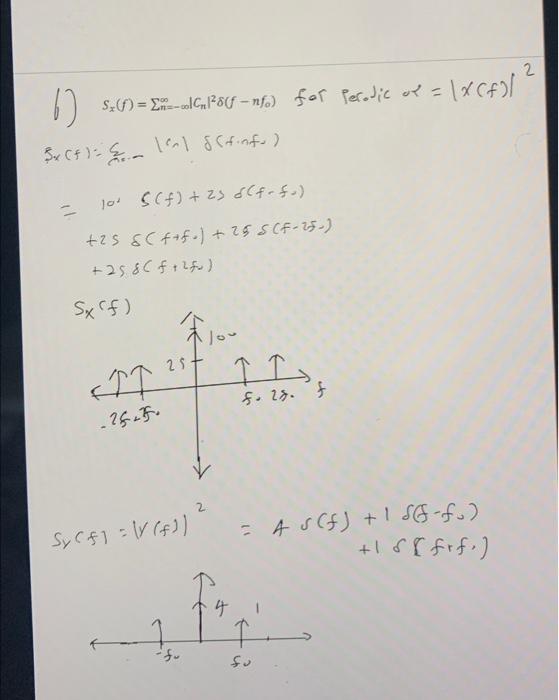 b) Sₓ(f) = Σ∞n=−∞|Cn|²δ(f − nf₀) for Perodic or = |X(f)|²
Sx(f) = Σ |Cn| δ(f-nf₀)
= 100 δ(f) + 25 δ(f-f₀)
+25 δ(f+f₀) + 25 δ(f-2f₀)
+25 δ(f+2f₀)
Sx(f)
100
25
-2f₀ -f₀ f₀ 2f₀ f
Sy(f) = |Y(f)|² = 4 δ(f) + 1 δ(f-f₀)
+1 δ(f+f₀)
4 1
-f₀ f₀